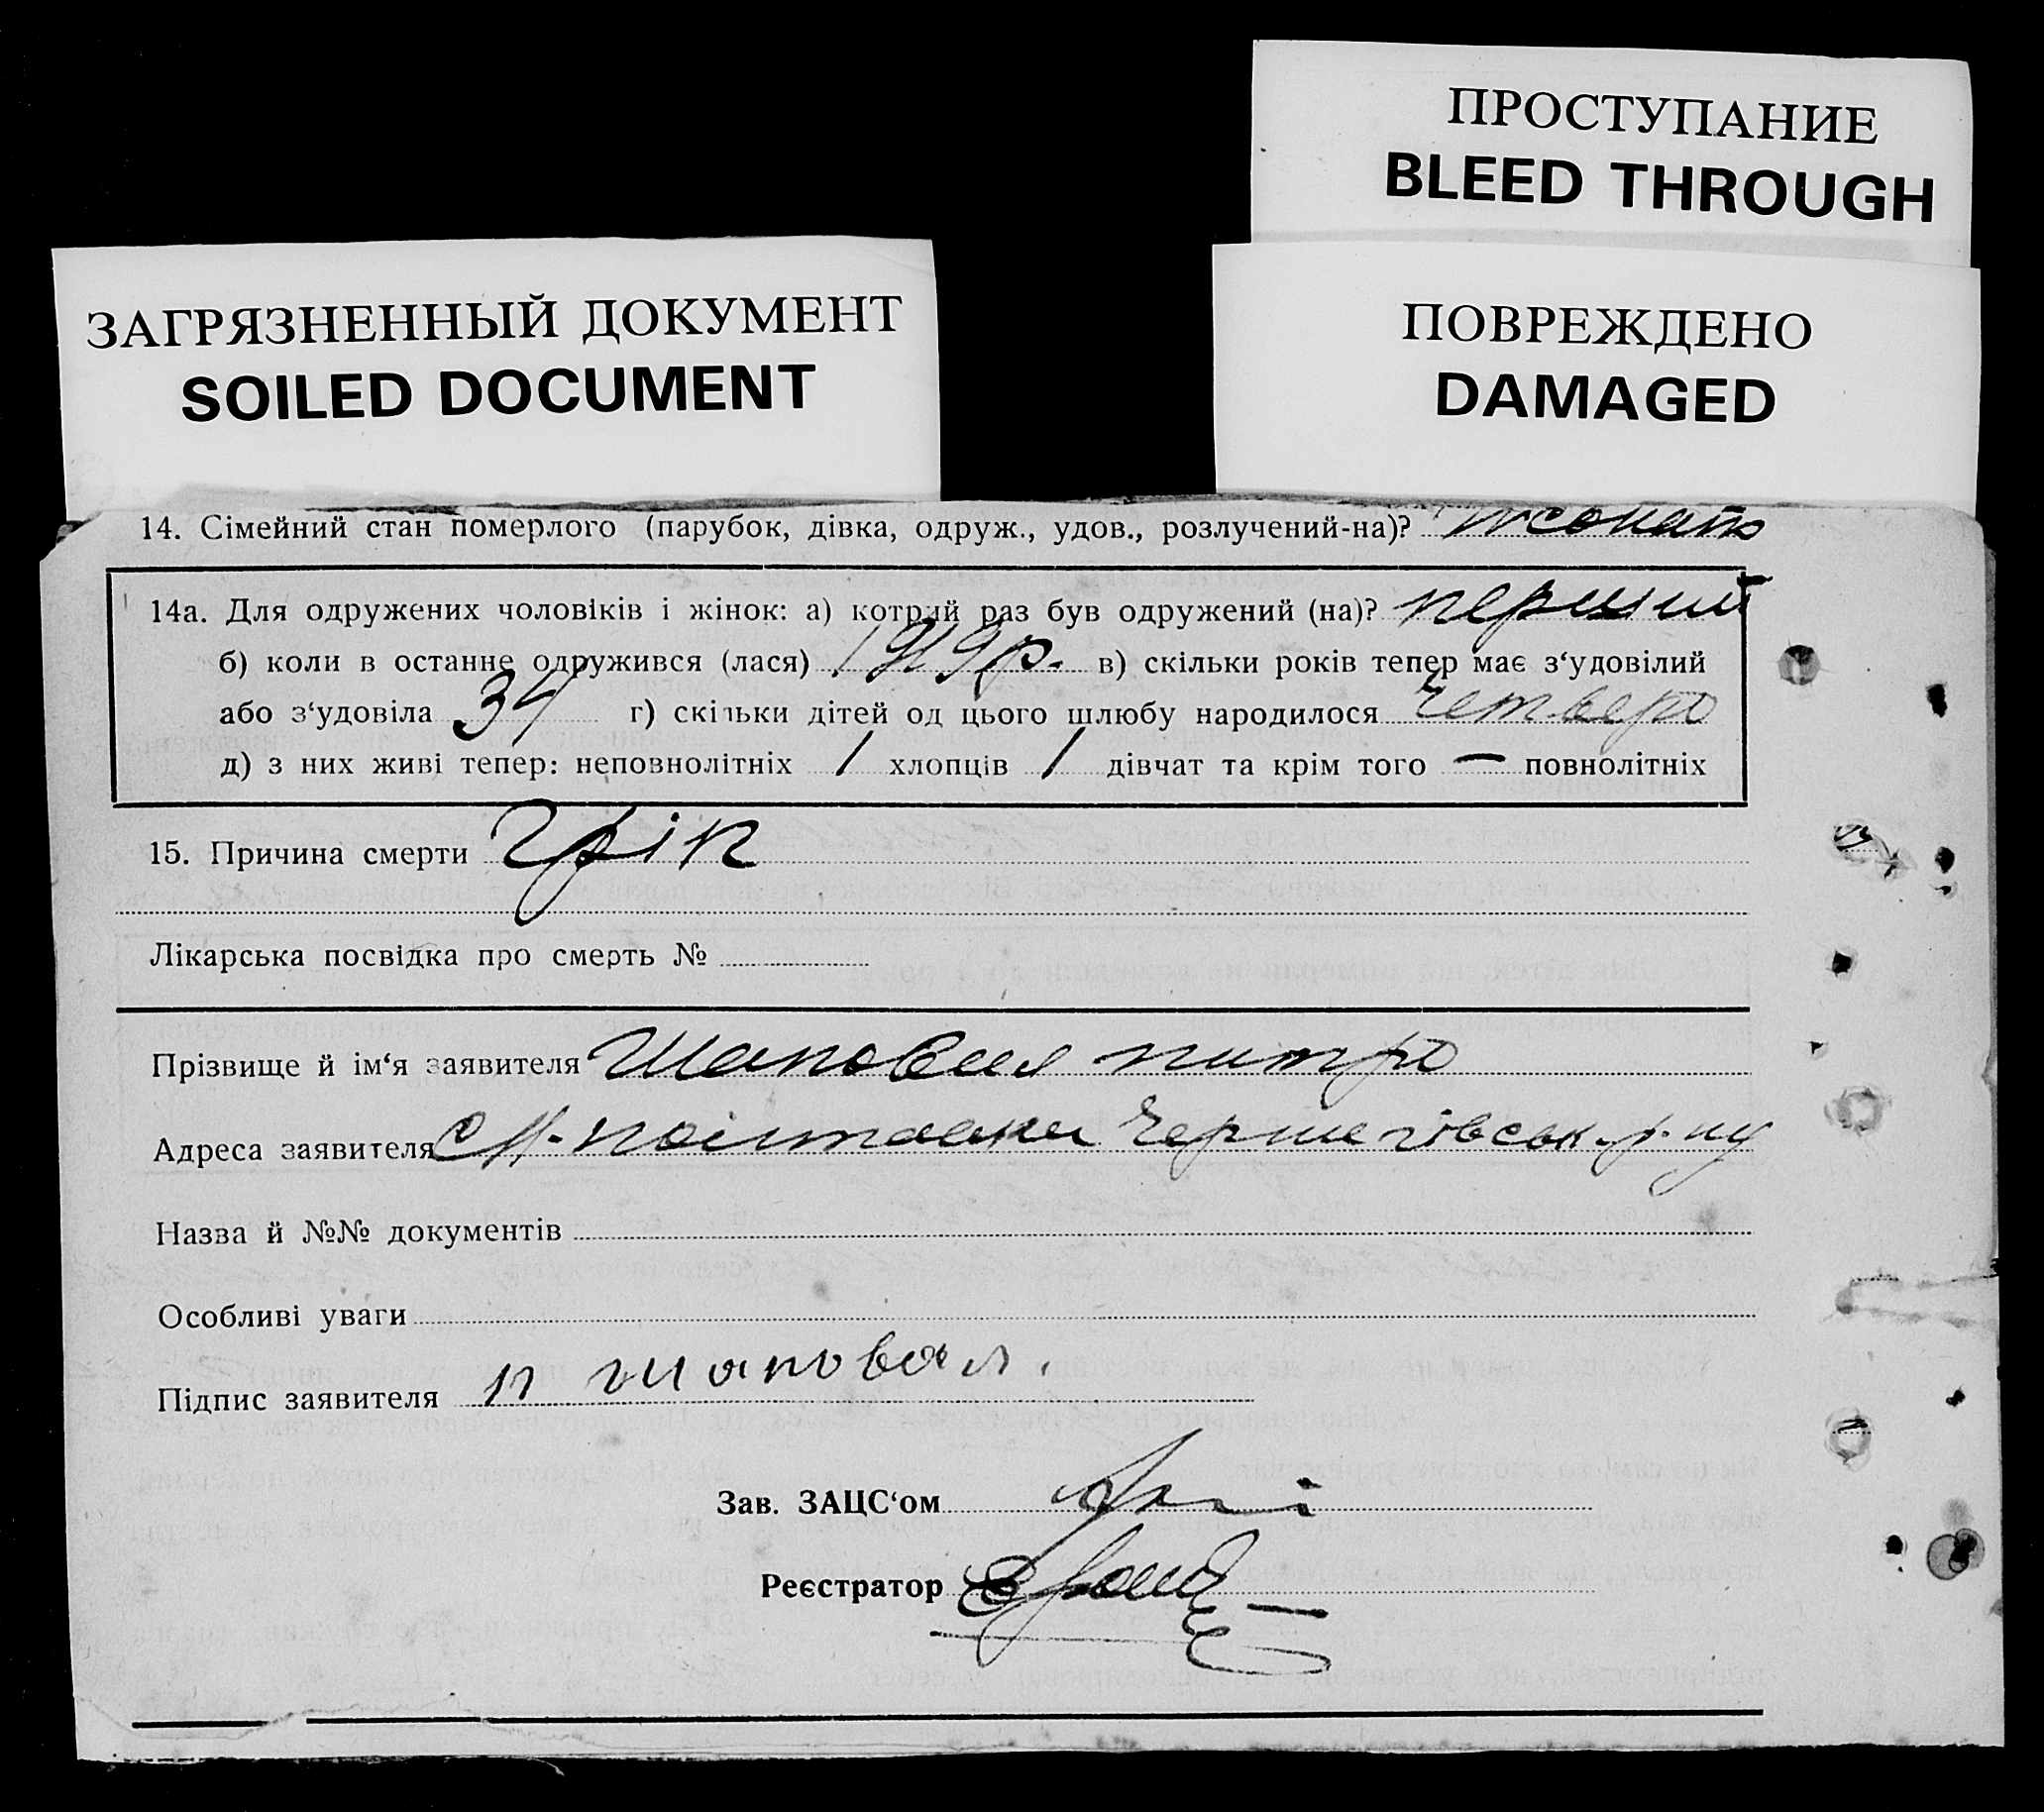 ПРОСТУПАНИЕ
BLEED THROUGH
ЗАГРЯЗНЕННЫЙ ДОКУМЕНТ
SOILED DOCUMENT
ПОВРЕЖДЕНО
DAMAGED
14. Сімейний стан померлого (парубок, дівка, одруж., удов., розлучений-на)?
14а. Для одружених чоловіків і жінок: а) котрий раз був одружений (на)? перший
б) коли в останнє одружився (лася) 1919р. в) скільки років тепер має з‘удовілий
або з‘удовіла 34 г) скільки дітей од цього шлюбу народилося четверо
д) з них живі тепер: неповнолітніх / хлопців / дівчат та крім того — повнолітніх
15. Причина смерти
Лікарська посвідка про смерть №
Прізвище й ім‘я заявителя Шаповал
Адреса заявителя
Назва й №№ документів
Особливі уваги
Підпис заявителя п шаповал.
Зав. ЗАЦС‘ом
Реєстратор